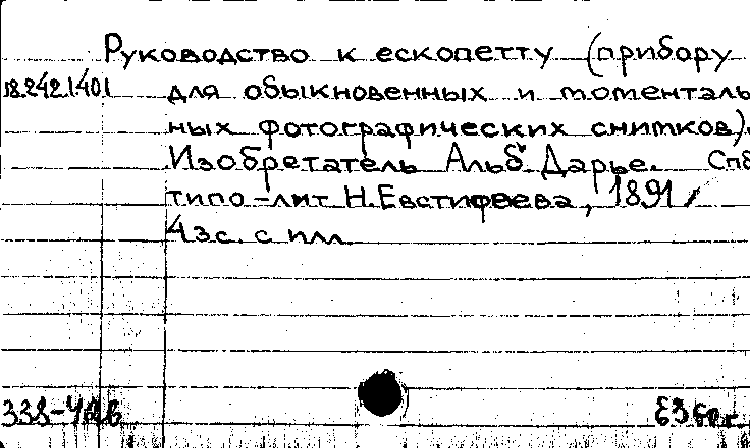 Руководство к ескопетту (прибору
18.242.1401 для обыкновенных и моменталь
ных фотографических снимков).
Изобретатель Альб. Дарье. Спб
типо-лит Н. Евстифеева, 1891
43 с. с илл.